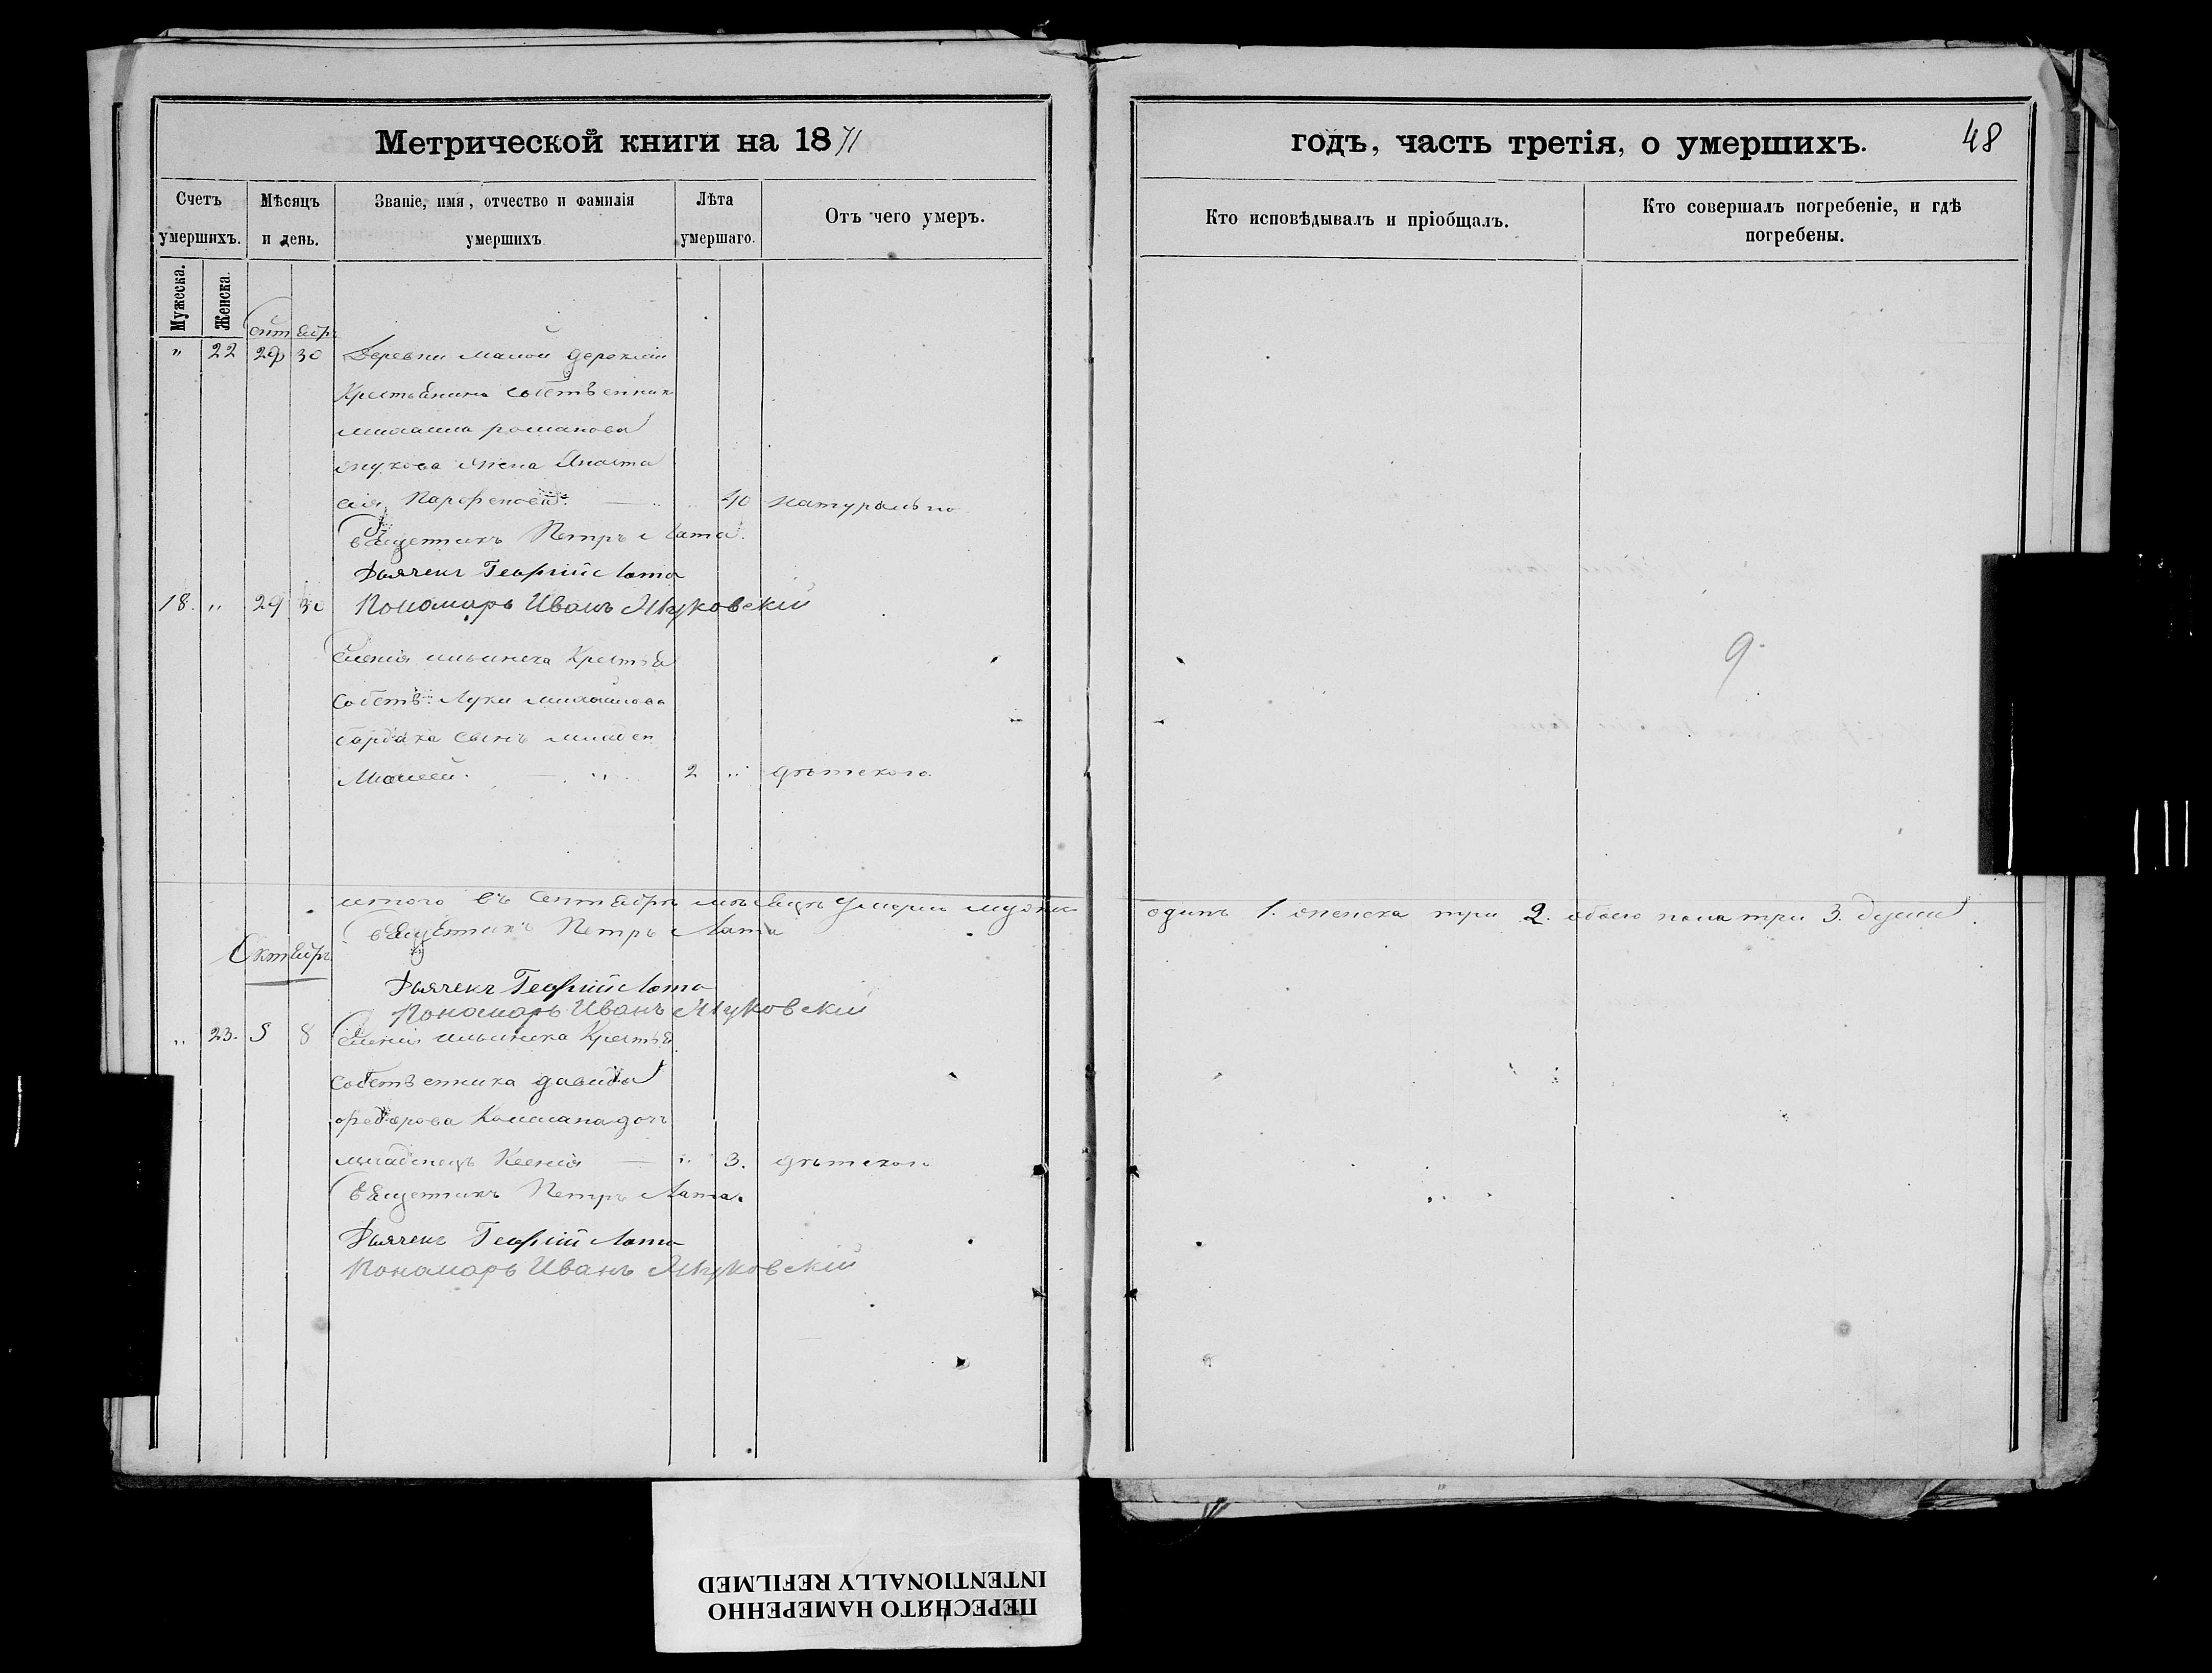 Метрической книги на 1871
годъ, часть третія, о умершихъ.
48
Счетъ умершихъ.
Мѣсяцъ и день.
Званіе, имя, отчество и фамилія умершихъ
Лѣта умершаго.
Отъ чего умеръ.
Кто исповѣдывалъ и пріобщалъ.
Кто совершалъ погребеніе, и гдѣ погребены.
Мужеска.
Женска.
Сентябрь
" 22 29 30 Деревни малой
Крестьянина собственника
михаила романова
жена Анаста
сія Парфенова. 40 натурально
Священникъ Петръ Лата.
Дьячекъ Георгій Лата
18. " 29 30 Пономарь Иванъ Жуковскій
Селенія ильинска Крестья
Собств: Луки михайлова
сынъ младен
Моисей. 2 " дѣтского.
итого въ Сентябрѣ мѣсяцѣ умерло мужеска
одинъ 1. женска три 2. обоего пола три 3. души.
Священникъ Петръ Лата
Октябрь
Дьячекъ Георгій Лата
Пономарь Иванъ Жуковскій
" 23. 5 8 Селенія ильинска Крестья
собственника давида
федорова дочь
младенецъ Ксенія " 3. дѣтского
Священникъ Петръ Лата.
Дьячекъ Георгій Лата
Пономарь Иванъ Жуковскій
9.
ПЕРЕСНЯТО НАМЕРЕННО
INTENTIONALLY REFILMED